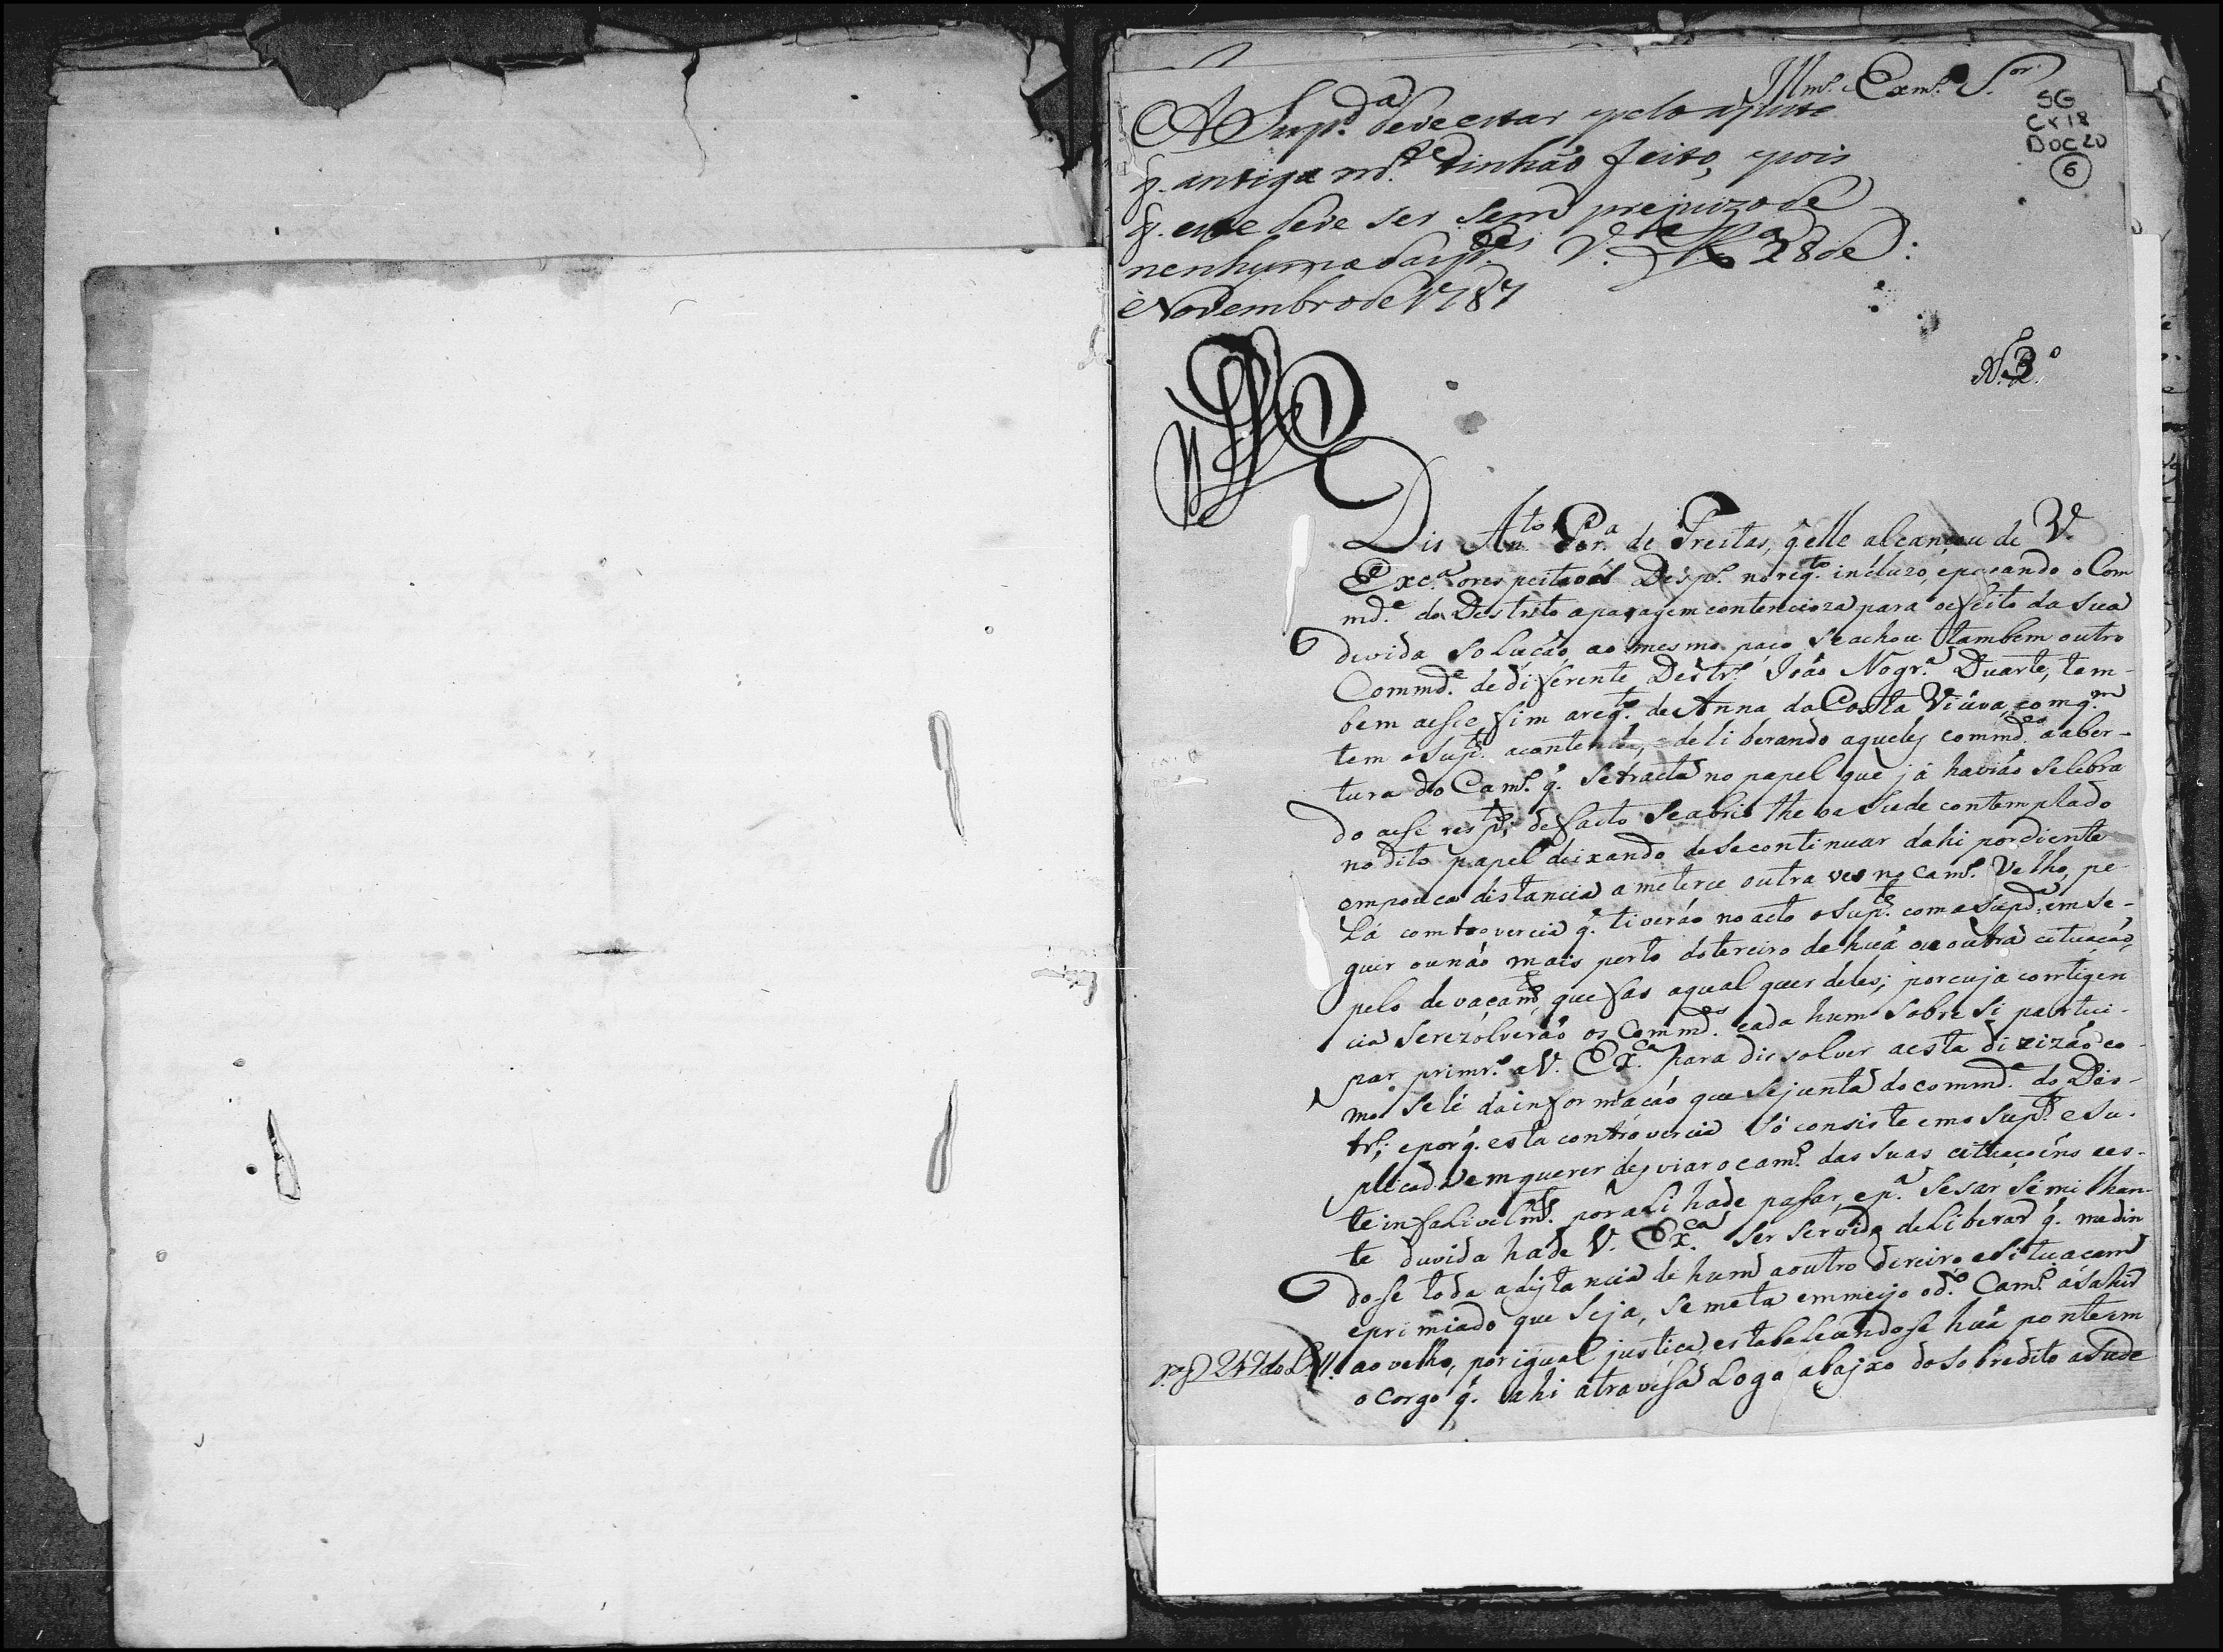 Illm.º Exm.º S.or
SG
CX 18
DOC 20
6
A Supd.a deve estar pelo ajuste
q. antigam.te tinhão feito, pois
q. este deve ser sem prejuizo de
nenhuma das p.tes V.a R.a 28 de
Novembro de 1787
N. 3.º
Dis Ant.to Per.a de Freitas, q elle alcançou de V.
Exc.a o respeitavel Desp.º no req.to incluzo, e pasando o Com
md.e do Destrito a paragem contencioza para o efeito da sua
divida solução, ao mesmo paço se achou tambem outro
Commd.e de diferente Destr.º João Nogr.a Duarte, tam-
bem aesse fim a req.to de Anna da Costa Viuva, com q.m
tem o Sup.te a contenda, e deliberando aqueles commd.es a aber-
tura do Cam.º q. se tracta no papel que já havião selebra
do aese resp.to, de facto se abrio the oa Sude contemplado
no dito papel deixando de se continuar dahi por diente
em pouca distancia a meterce outra ves no Cam.º Velho, pe-
la controvercia q. tiverão no acto o Sup.te com a Supd.a em se-
guir ou não mais perto do tereiro de huã ou outra cituação,
pelo devaçam.to que fas a qual quer deles; por cuja contigen
cia se rezolverão os Commd.es cada hum sobre si partici-
par primr.º a V. Ex.ca para dissolver a esta divizão co-
mo se lé da informação que se junta do commd.e do Des-
tr.º; e porq. esta controvercia só consiste em o Sup.te e Su-
plicada em querer desviar o cam.º das suas cituaçoéns aes-
te infalivelm.te por ali hade pasar, e p.a sesar similhan-
te duvida hade V. Ex.ca ser servido deliberar q. medin
do-se toda a distancia de hum a outro tereiro, e situacam
e primiado que seja, se meta em meyo o d.º Cam.º á sahir
ao velho, por igual justiça, estabelecendose huã ponte em
o corgo q. ahi atravesa logo abajxo do sobredito asude
247 do L.º 11.